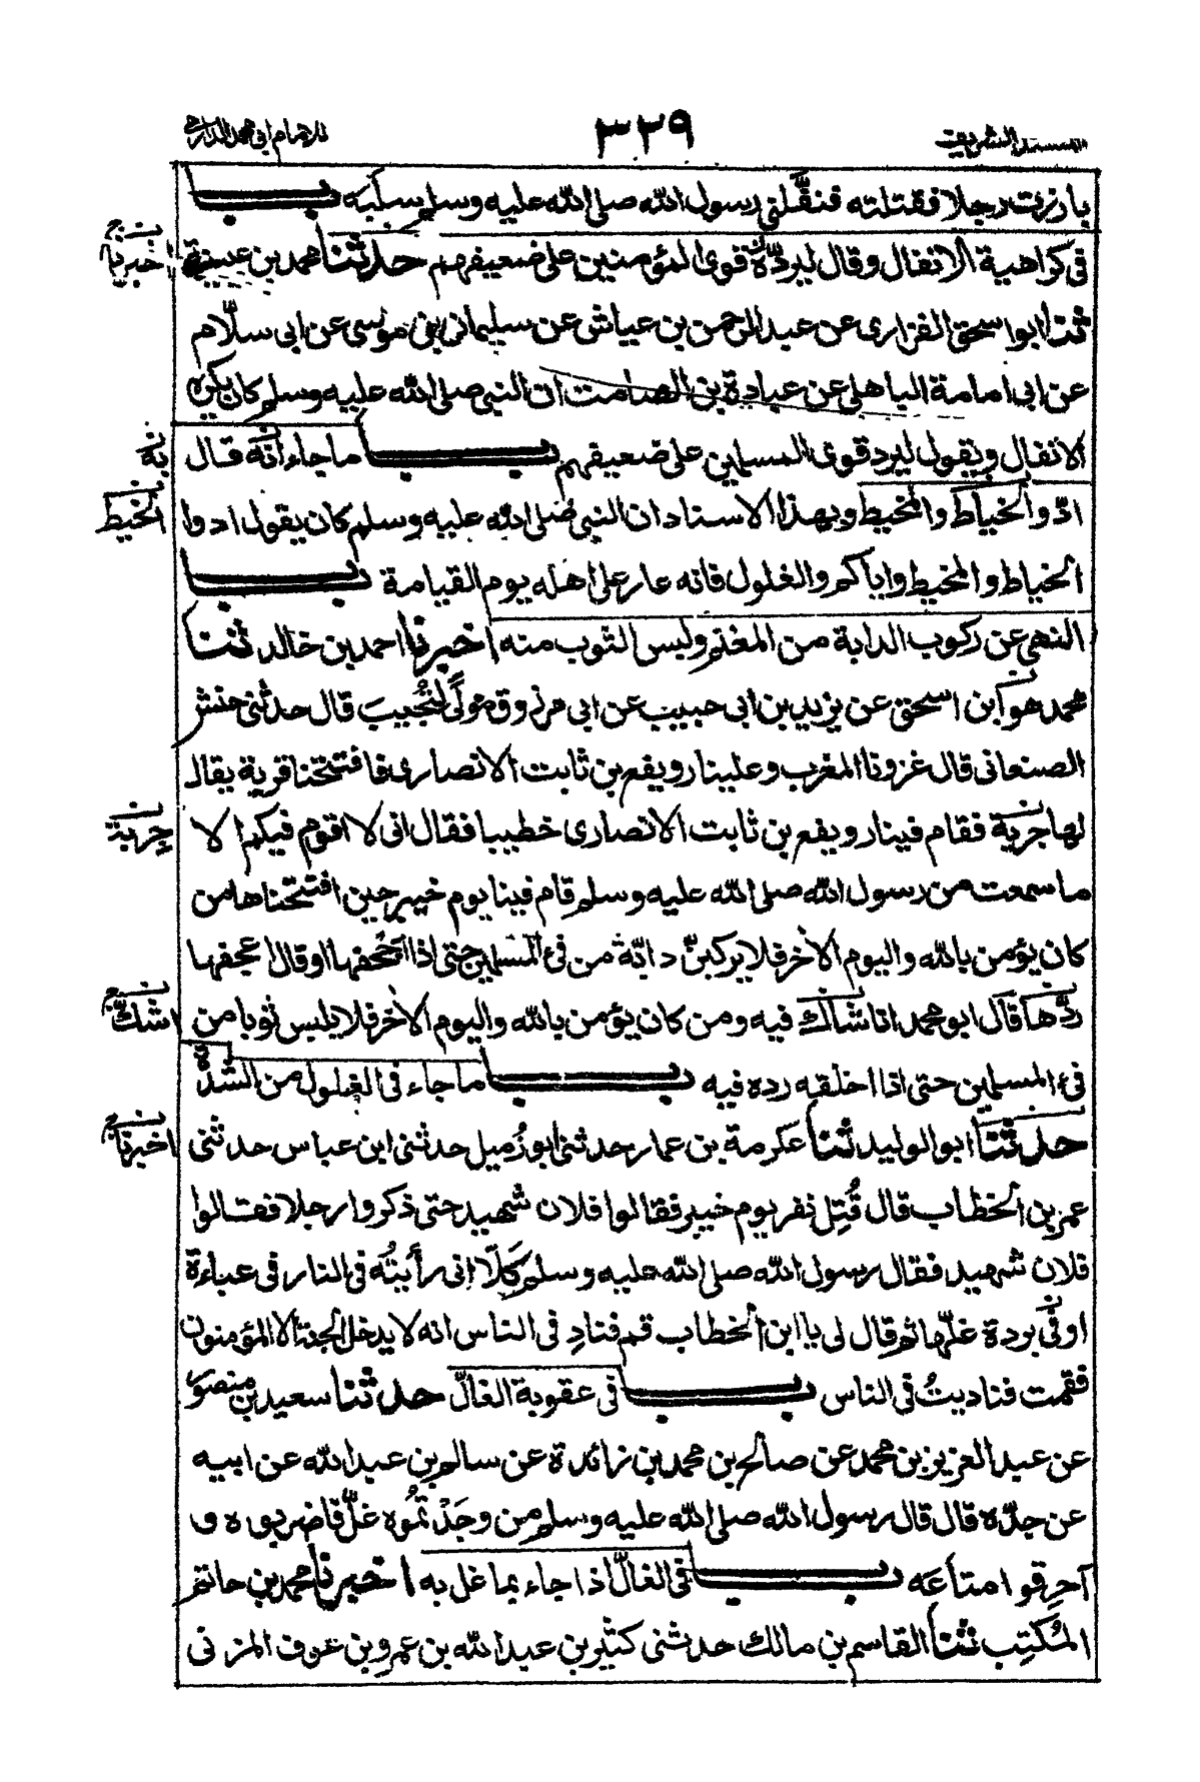 المسند الشريف
٣٢٩
للامام ابی محمد الدارمی
بارزت رجلا فقتلته فنفَّلنی رسول الله صلی الله علیه وسلم سلَبَه بــاب
فی کراهیة الانفال وقال لیردّ قوی المؤمنین علی ضعیفهم حدثنا محمد بن عیینة
اخبرنا
ثنا ابو اسحق الفزاری عن عبد الرحمن بن عیاش عن سلیمان بن موسی عن ابی سلّام
عن ابی امامة الباهلی عن عبادة بن الصامت ان النبی صلی الله علیه وسلم کان یکره
الانفال ویقول لیرد قوی المسلمین علی ضعیفهم بــاب ما جاء انّه قال
بِهٖ
ادّوا الخیاط والمخیط وبهذا الاسناد ان النبی صلی الله علیه وسلم کان یقول ادوا
الخیط
الخیاط والمخیط وایاکم والغلول فانه عار علی اهله یوم القیامة بــاب
النهی عن رکوب الدابة من المغنم ولبس الثوب منه اخبرنا احمد بن خالد ثنا
محمد هو ابن اسحق عن یزید بن ابی حبیب عن ابی مرزوق مولًی لتُجیبَ قال حدثنی حنش
الصنعانی قال غزونا المغرب وعلینا رویفع بن ثابت الانصاری فافتتحنا قریة یقال
لها جربة فقام فینا رویفع بن ثابت الانصاری خطیبا فقال انی لا اقوم فیکم الا
جِربة
ما سمعت من رسول الله صلی الله علیه وسلم قام فینا یوم خیبر حین افتتحناها من
کان یؤمن بالله والیوم الآخر فلا یرکبنّ دابّة من فئ المسلمین حتی اذا اجحفها او قال اعجفها
ردّها قال ابو محمد انا شاک فیه ومن کان یؤمن بالله والیوم الآخر فلا یلبس ثوبا من
اشکّ
فئ المسلمین حتی اذا اخلقه رده فیه بــاب ما جاء فی الغلول من الشدّة
حدثنا ابو الولید ثنا عکرمة بن عمار حدثنی ابو زُمیل حدثنی ابن عباس حدثنی
اخبرنا
عمر بن الخطاب قال قُتِل نفر یوم خیبر فقالوا فلان شهید حتی ذکروا رجلا فقالوا
فلان شهید فقال رسول الله صلی الله علیه وسلم کَلّا انی رأیتُه فی النار فی عباءة
او فی بردة غلّها ثم قال لی یا ابن الخطاب قم فنادِ فی الناس انه لا یدخل الجنة الا المؤمنون
فقمت فنادیتُ فی الناس بــاب فی عقوبة الغالّ حدثنا سعید بن منصور
عن عبد العزیز بن محمد عن صالح بن محمد بن زائدة عن سالم بن عبد الله عن ابیه
عن جدّه قال قال رسول الله صلی الله علیه وسلم من وجَدْتموُه غلّ فاضربوه و
آحرِقوا متاعَه بــاب فی الغالّ اذا جاء بما غل به اخبرنا محمد بن حاتم
المُکتِب ثنا القاسم بن مالک حدثنی کثیر بن عبد الله بن عمرو بن عوف المزنی